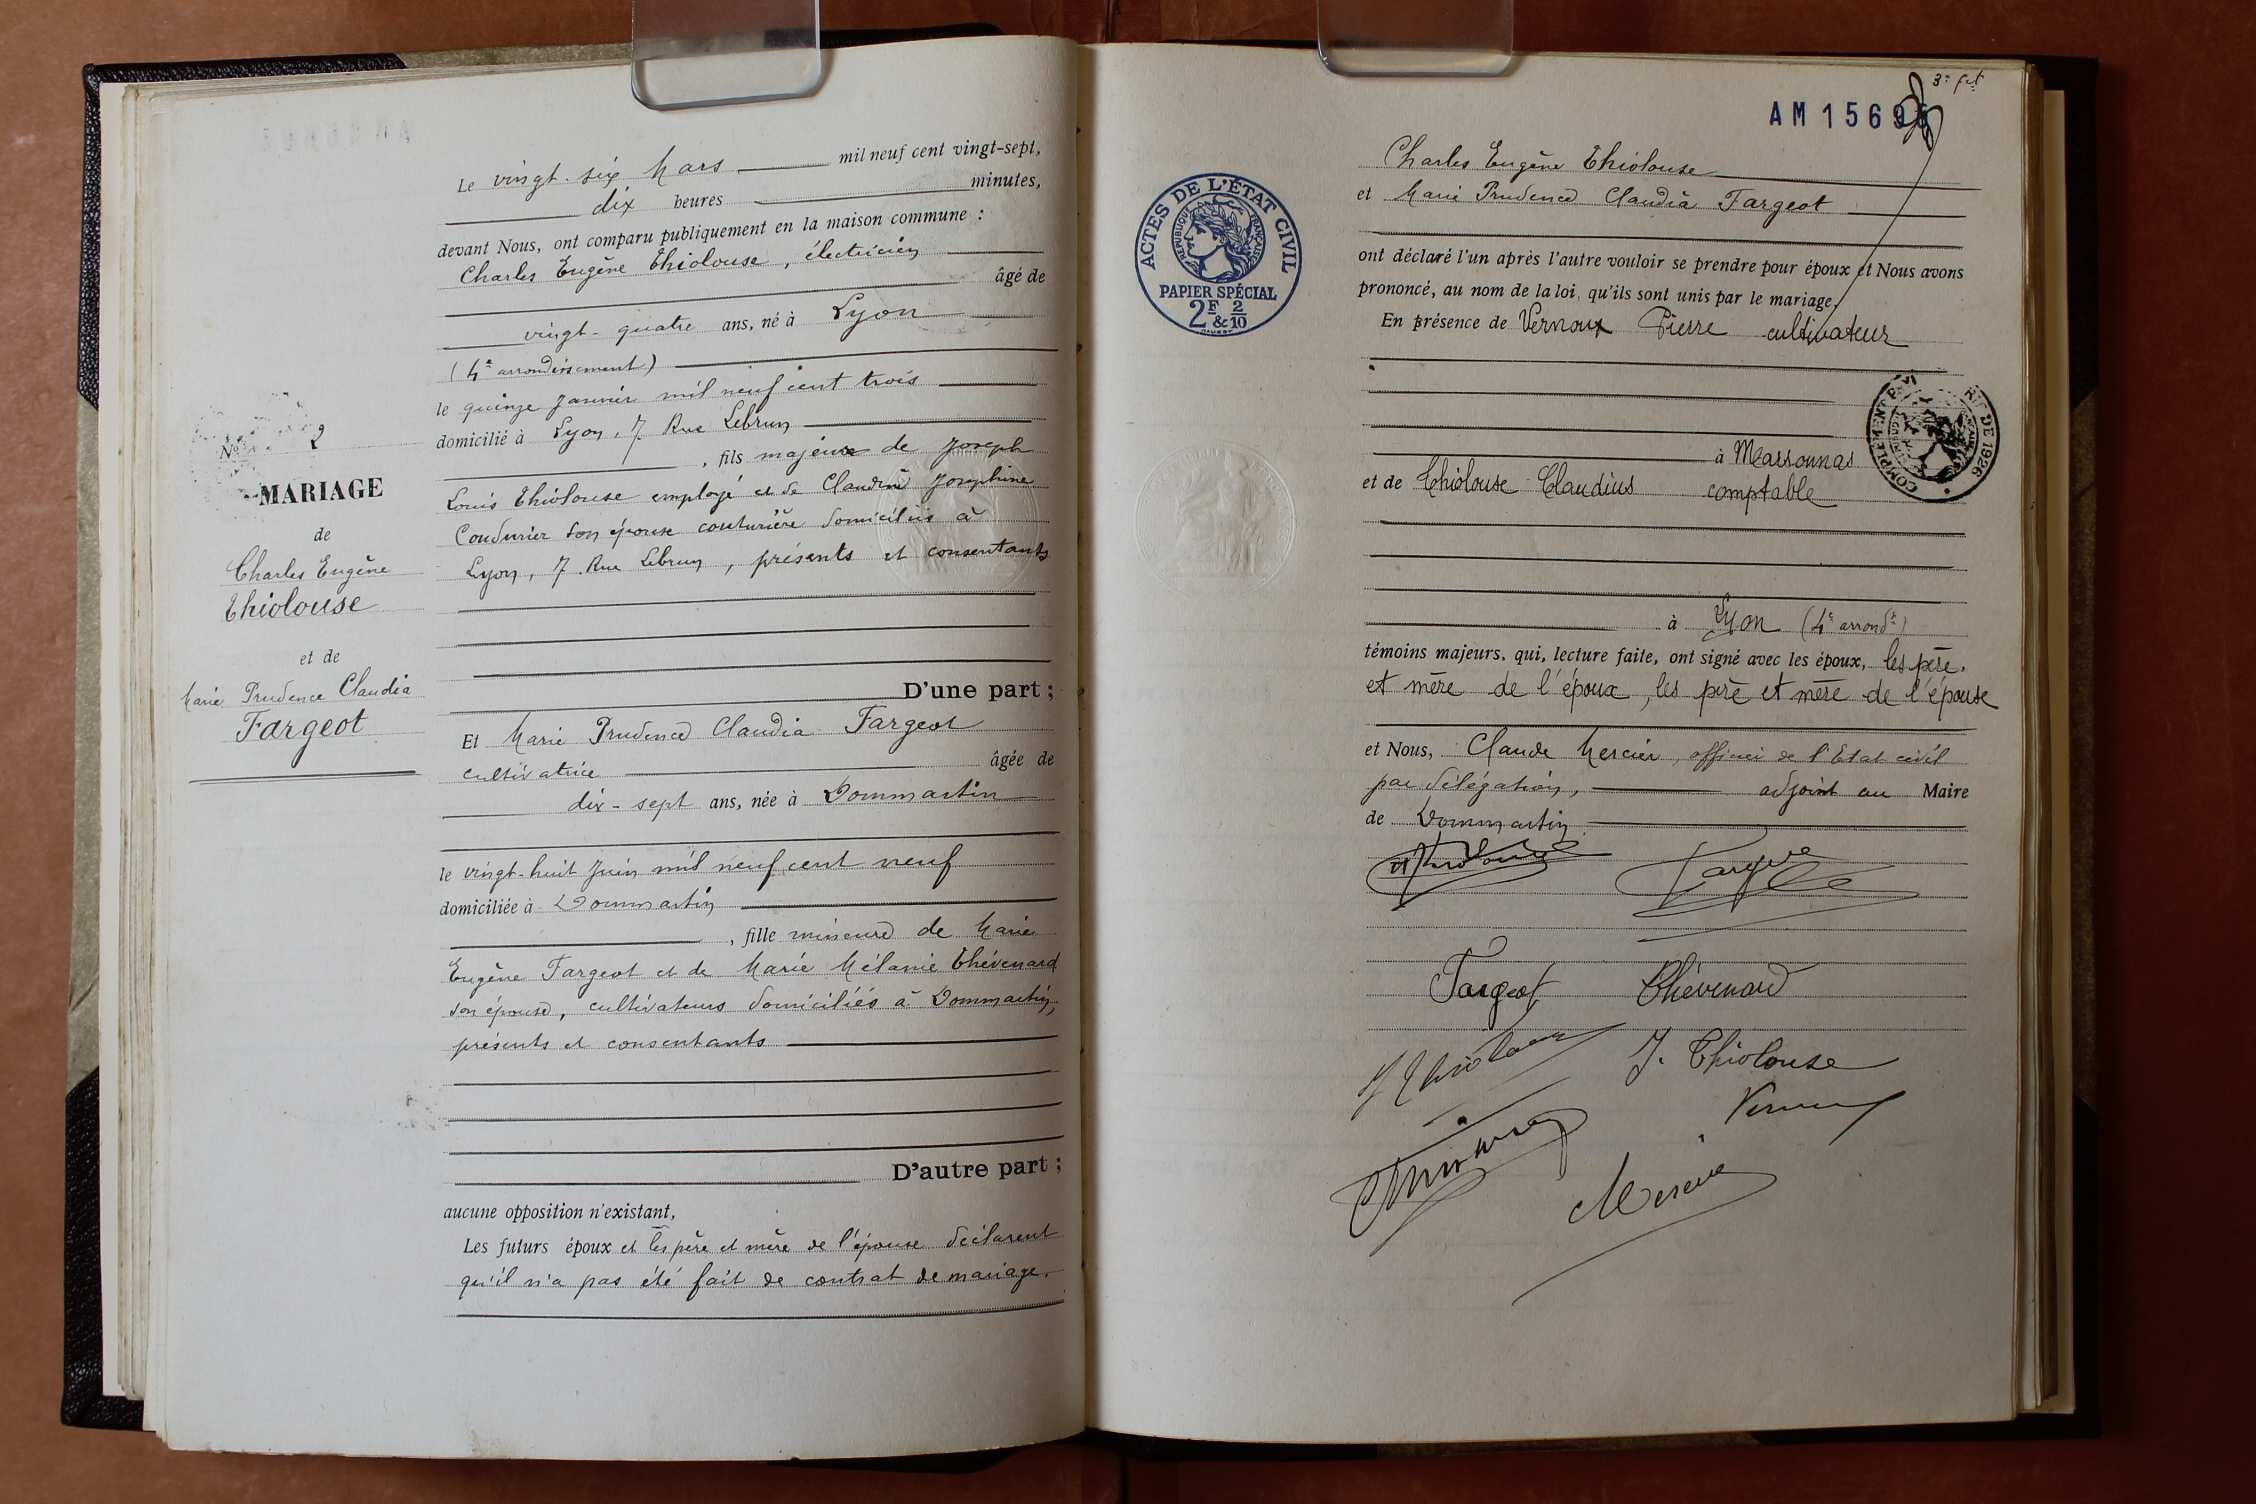 Le vingt-six Mars mil neuf cent vingt-sept,
dix heures minutes,
devant Nous, ont comparu publiquement en la maison commune :
Charles Eugène Thiolouse, électricien
âgé de
vingt-quatre ans, né à Lyon
(4e arrondissement)
le quinze Janvier mil neuf cent trois
domicilié à Lyon, 7 Rue Lebrun
, fils majeur de Joseph
Louis Thiolouse employé et de Claudine Joséphine
Coudurier son épouse couturière domiciliés à
Lyon, 7 Rue Lebrun, présents et consentants
D'une part ;
Et Marie Prudence Claudia Fargeot
cultivatrice âgée de
dix-sept ans, née à Dommartin
le vingt-huit Juin mil neuf cent neuf
domiciliée à Dommartin
, fille mineure de Marie
Eugène Fargeot et de Marie Mélanie Thévenard
son épouse, cultivateurs domiciliés à Dommartin,
présents et consentants
D'autre part ;
aucune opposition n'existant,
Les futurs époux et les père et mère de l'épouse déclarent
qu'il n'a pas été fait de contrat de mariage.
No 2
MARIAGE
de
Charles Eugène
Thiolouse
et de
Marie Prudence Claudia
Fargeot
AM 1569
ACTES DE L'ÉTAT CIVIL
RÉPUBLIQUE FRANÇAISE
PAPIER SPÉCIAL
2F & 2/10
Charles Eugène Thiolouse
et Marie Prudence Claudia Fargeot
ont déclaré l'un après l'autre vouloir se prendre pour époux et Nous avons
prononcé, au nom de la loi, qu'ils sont unis par le mariage,
En présence de Vernoux Pierre cultivateur
à Marsonnas
COMPLÉMENT DE 1926
et de Thiolouse Claudius comptable
à Lyon (4e arrondt)
témoins majeurs, qui, lecture faite, ont signé avec les époux, les père
et mère de l'époux, les père et mère de l'épouse
et Nous, Claude Mercier, officier de l'Etat civil
par délégation, adjoint au Maire
de Dommartin
Fargeot Thévenard
J. Thiolouse
Mercier